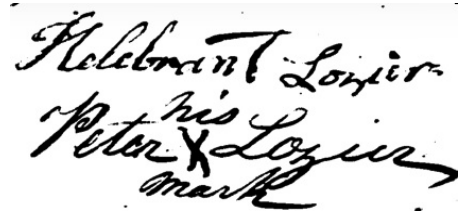 Helebrant Lozier
his
Peter X Lozier
mark